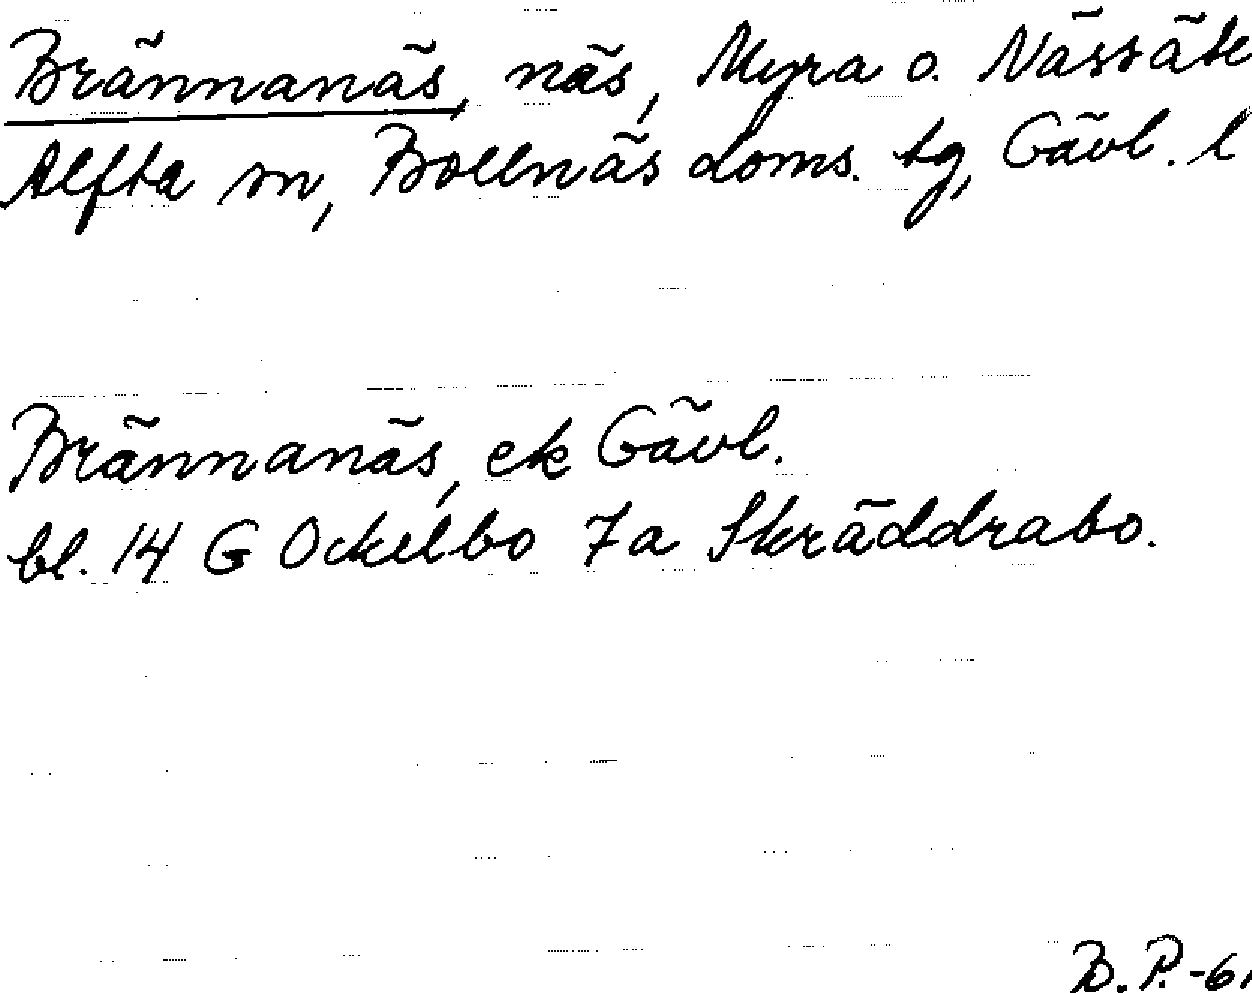 Brännanäs, näs, Myra o. Nässäte
Alfta sn, Bollnäs doms. tg, Gävl. l
Brännanäs, ek Gävl.
bl. 14 G Ockelbo 7a Skräddrabo.
B.P.-61